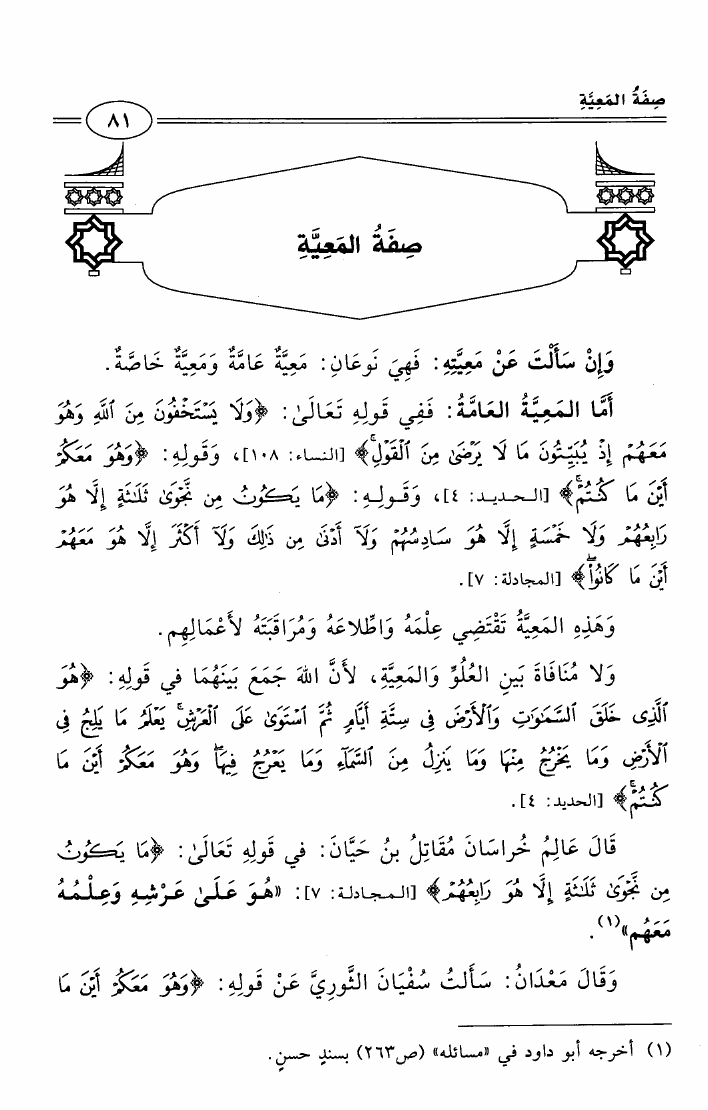 صِفَةُ المَعِيَّةِ
٨١
صِفَةُ المَعِيَّةِ
وَإِنْ سَأَلْتَ عَنْ مَعِيَّتِهِ: فَهِيَ نَوعَانِ: مَعِيَّةٌ عَامَّةٌ وَمَعِيَّةٌ خَاصَّةٌ.
أَمَّا المَعِيَّةُ العَامَّةُ: فَفِي قَولِهِ تَعَالَىٰ: ﴿وَلَا يَسْتَخْفُونَ مِنَ ٱللَّهِ وَهُوَ
مَعَهُمْ إِذْ يُبَيِّتُونَ مَا لَا يَرْضَىٰ مِنَ ٱلْقَوْلِ ۚ﴾ [النساء: ١٠٨]، وَقَولِهِ: ﴿وَهُوَ مَعَكُمْ
أَيْنَ مَا كُنتُمْ ۚ﴾ [الحديد: ٤]، وَقَولِهِ: ﴿مَا يَكُونُ مِن نَّجْوَىٰ ثَلَـٰثَةٍ إِلَّا هُوَ
رَابِعُهُمْ وَلَا خَمْسَةٍ إِلَّا هُوَ سَادِسُهُمْ وَلَآ أَدْنَىٰ مِن ذَٰلِكَ وَلَآ أَكْثَرَ إِلَّا هُوَ مَعَهُمْ
أَيْنَ مَا كَانُوا۟ ۖ﴾ [المجادلة: ٧].
وَهَذِهِ المَعِيَّةُ تَقْتَضِي عِلْمَهُ وَاطِّلاعَهُ وَمُرَاقَبَتَهُ لأَعْمَالِهِم.
وَلا مُنَافَاةَ بَينِ العُلُوِّ وَالمَعِيَّةِ، لأَنَّ اللهَ جَمَعَ بَينَهُمَا في قَولِهِ: ﴿هُوَ
ٱلَّذِى خَلَقَ ٱلسَّمَـٰوَٰتِ وَٱلْأَرْضَ فِى سِتَّةِ أَيَّامٍ ثُمَّ ٱسْتَوَىٰ عَلَى ٱلْعَرْشِ ۚ يَعْلَمُ مَا يَلِجُ فِى
ٱلْأَرْضِ وَمَا يَخْرُجُ مِنْهَا وَمَا يَنزِلُ مِنَ ٱلسَّمَآءِ وَمَا يَعْرُجُ فِيهَا ۖ وَهُوَ مَعَكُمْ أَيْنَ مَا
كُنتُمْ ۚ﴾ [الحديد: ٤].
قَالَ عَالِمُ خُراسَانَ مُقَاتِلُ بنُ حَيَّانَ: في قَولِهِ تَعَالَىٰ: ﴿مَا يَكُونُ
مِن نَّجْوَىٰ ثَلَـٰثَةٍ إِلَّا هُوَ رَابِعُهُمْ﴾ [المجادلة: ٧]: «هُوَ عَلَىٰ عَرْشِهِ وَعِلْمُهُ
مَعَهُم»(١).
وَقَالَ مَعْدَانُ: سَأَلتُ سُفْيَانَ الثَّورِيَّ عَنْ قَولِهِ: ﴿وَهُوَ مَعَكُمْ أَيْنَ مَا
(١) أخرجه أبو داود في «مسائله» (ص٢٦٣) بسندٍ حسنٍ.